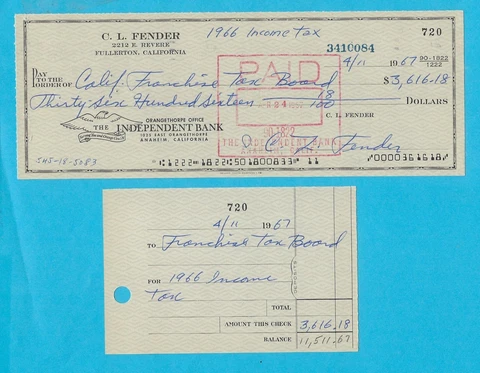 C. L. FENDER
2212 E. REVERE
FULLERTON, CALIFORNIA
1966 Income Tax
720
3410084
4/11 1967
90-1822
1222
PAY TO THE ORDER OF Calif. Franchise Tax Board $3,616.18
Thirty Six Hundred Sixteen 18/100 DOLLARS
PAID
90-1822
THE INDEPENDENT BANK
C. L. FENDER
ORANGETHORPE OFFICE
THE INDEPENDENT BANK
ANAHEIM, CALIFORNIA
C. L. Fender
545-18-5083
⑆1222⑉1822⑆501800833⑈ 11 ⑈0000361618⑈
720
4/11 1967
TO Franchise Tax Board
FOR 1966 Income
Tax
DEPOSITS
TOTAL
AMOUNT THIS CHECK 3,616.18
BALANCE 11,511.67